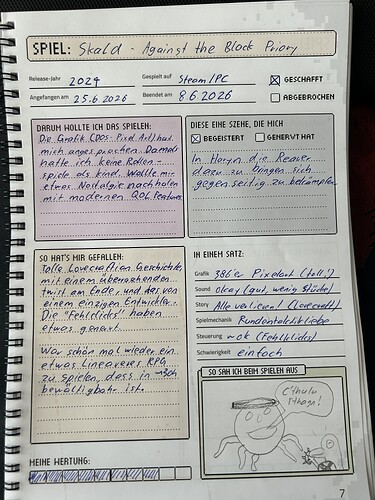 SPIEL: Skald - Against the Black Priory
Release-Jahr 2024 Gespielt auf Steam/PC
GESCHAFFT
Angefangen am 25.6.2026 Beendet am 8.6.2026
ABGEBROCHEN
DARUM WOLLTE ICH DAS SPIELEN:
Die Grafik (Dos-Pixel Art) hat
mich angesprochen. Damals
hatte ich keine Rollen-
spiele als Kind. Wollte mir
etwas Nostalgie nachholen
mit modernen QOL Features
DIESE EINE SZENE, DIE MICH
BEGEISTERT GENERVT HAT
In Horyn die Reaver
dazu zu bringen sich
gegenseitig zu bekämpfen
SO HAT'S MIR GEFALLEN:
Tolle Lovecraftian Geschichte
mit einem überraschenden
twist am Ende, und das von
einem einzigen Entwickler.
Die "Fehlclicks" haben
etwas genervt.
War schön mal wieder ein
etwas lineareres RPG
zu spielen, dass in ~30h
bewältigbar ist.
IN EINEM SATZ:
Grafik 386er Pixelart (toll!)
Sound okay (gut, wenig Stücke)
Story Alle verlieren! (Lovecraft)
Spielmechanik Rundentaktikliebe
Steuerung ~ok (Fehlclicks)
Schwierigkeit einfach
SO SAH ICH BEIM SPIELEN AUS
C'thulu
fthagn!
MEINE WERTUNG:
7